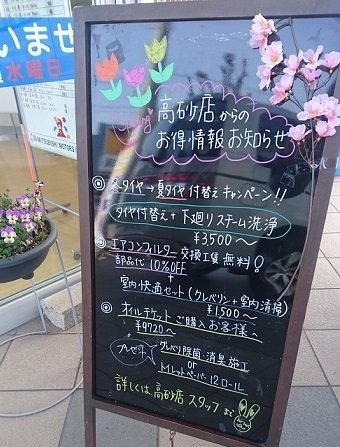 いませ
水曜日
MITSUBISHI MOTORS
Spring
高砂店からの
お得情報お知らせ
◎ 冬タイヤ→夏タイヤ付替えキャンペーン!!
タイヤ付替え+下廻りスチーム洗浄
¥3500～
◎ エアコンフィルター交換工賃無料!
部品代10%OFF
+
室内快適セット(クレベリン+室内清掃)
¥1,500～
◎ オイルチケットご購入お客様へ
¥9720～
プレゼント
クレベリン除菌・消臭施工
or
トイレットペーパー12ロール
詳しくは、高砂店スタッフまで